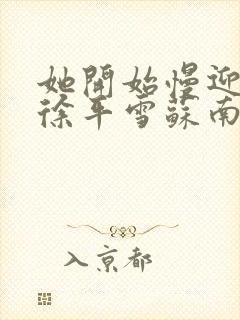 她開始慢迎
徐平雪蘇南
入京都